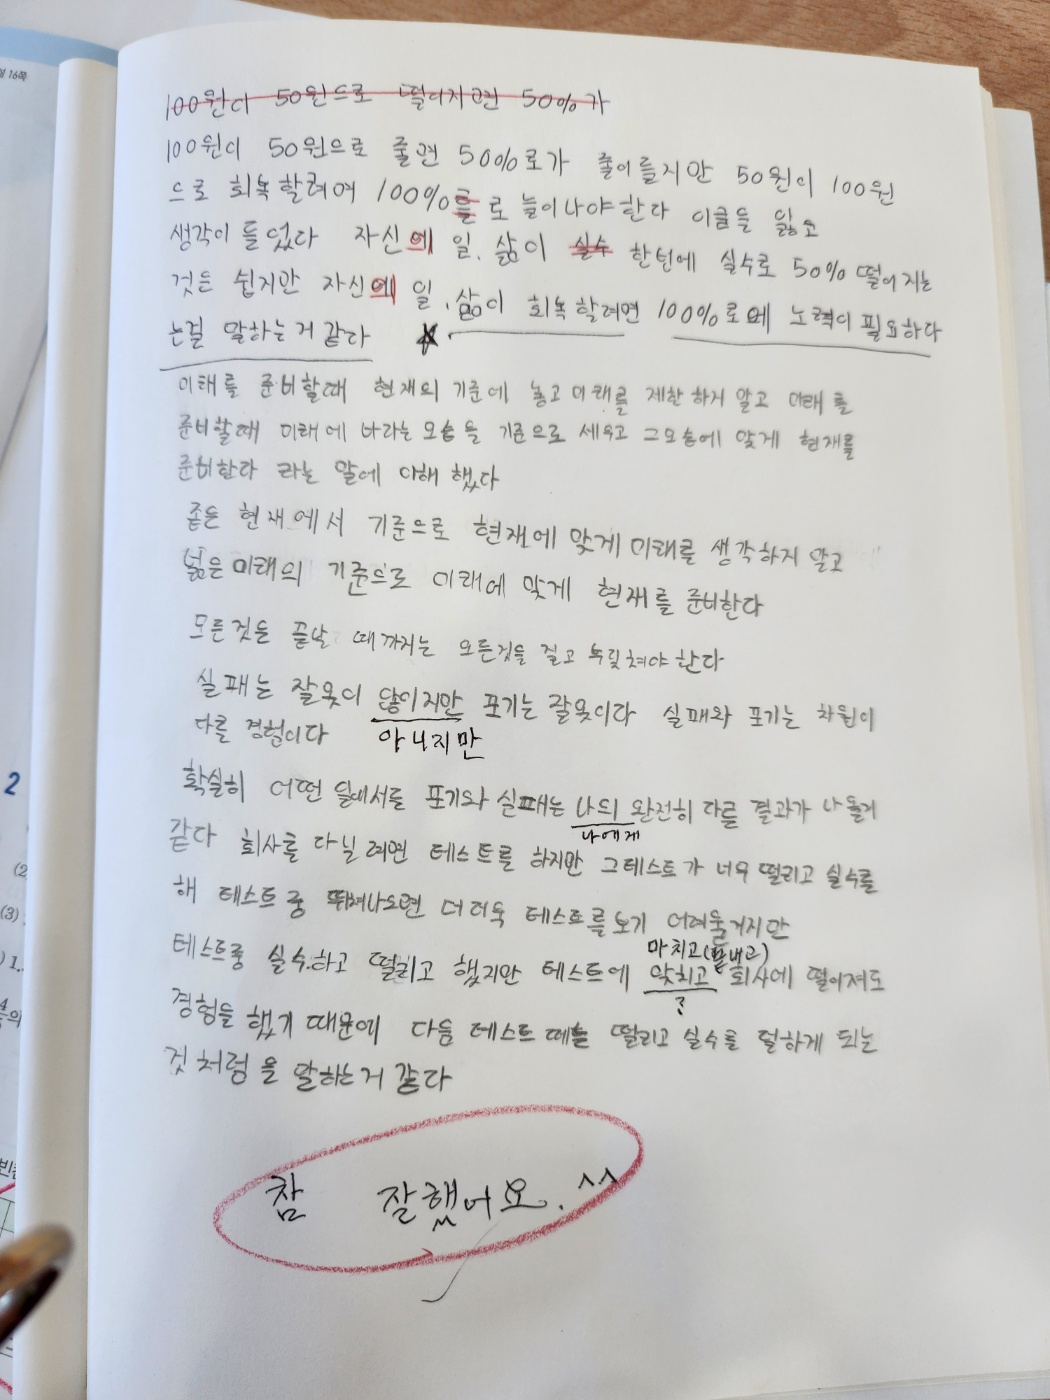 100원이 50원으로 떨어지면 50%가
100원이 50원으로 줄면 50%로가 줄어들지만 50원이 100원
으로 회복할려여 100%를로 늘어나야한다 이글을 잃고
생각이 들었다 자신에 일, 삶이 실수 한번에 실수로 50% 떨어지는
것은 쉽지만 자신에 일, 삶이 회복할려면 100%로에 노력이 필요하다
는걸 말하는거 같다
미래를 준비할때 현재의 기준에 놓고 미래를 제한하지 말고 미래를
준비할때 미래에 바라는 모습을 기준으로 세우고 그모습에 맞게 현재를
준비한다 라는 말에 이해 했다
좁은 현재에서 기준으로 현재에 맞게 미래를 생각하지 말고
넓은 미래의 기준으로 미래에 맞게 현재를 준비한다
모른것은 끝날 때까지는 모든것을 걸고 쳐야 한다
실패는 잘못이 않이지만 포기는 잘못이다 실패와 포기는 차원이
다를 경험이다 아니지만
확실히 어떤 일에서를 포기와 실패는 나의 완전히 다를 결과가 나올거
나에게
같다 회사를 다닐려면 테스트를 하지만 그테스트가 너무 떨리고 실수를
해 테스트중 뛰쳐나오면 더더욱 테스트를보기 어려울거지만
마치고(끝내고)
테스트중 실수하고 떨리고 했지만 테스트에 맞치고 회사에 떨어져도
?
경험을 했기 때문에 다음 테스트 때는 떨리고 실수를 덜하게 되는
것 처럼을 말하는거 같다
참 잘했어요. ^^
2
(2
(3)